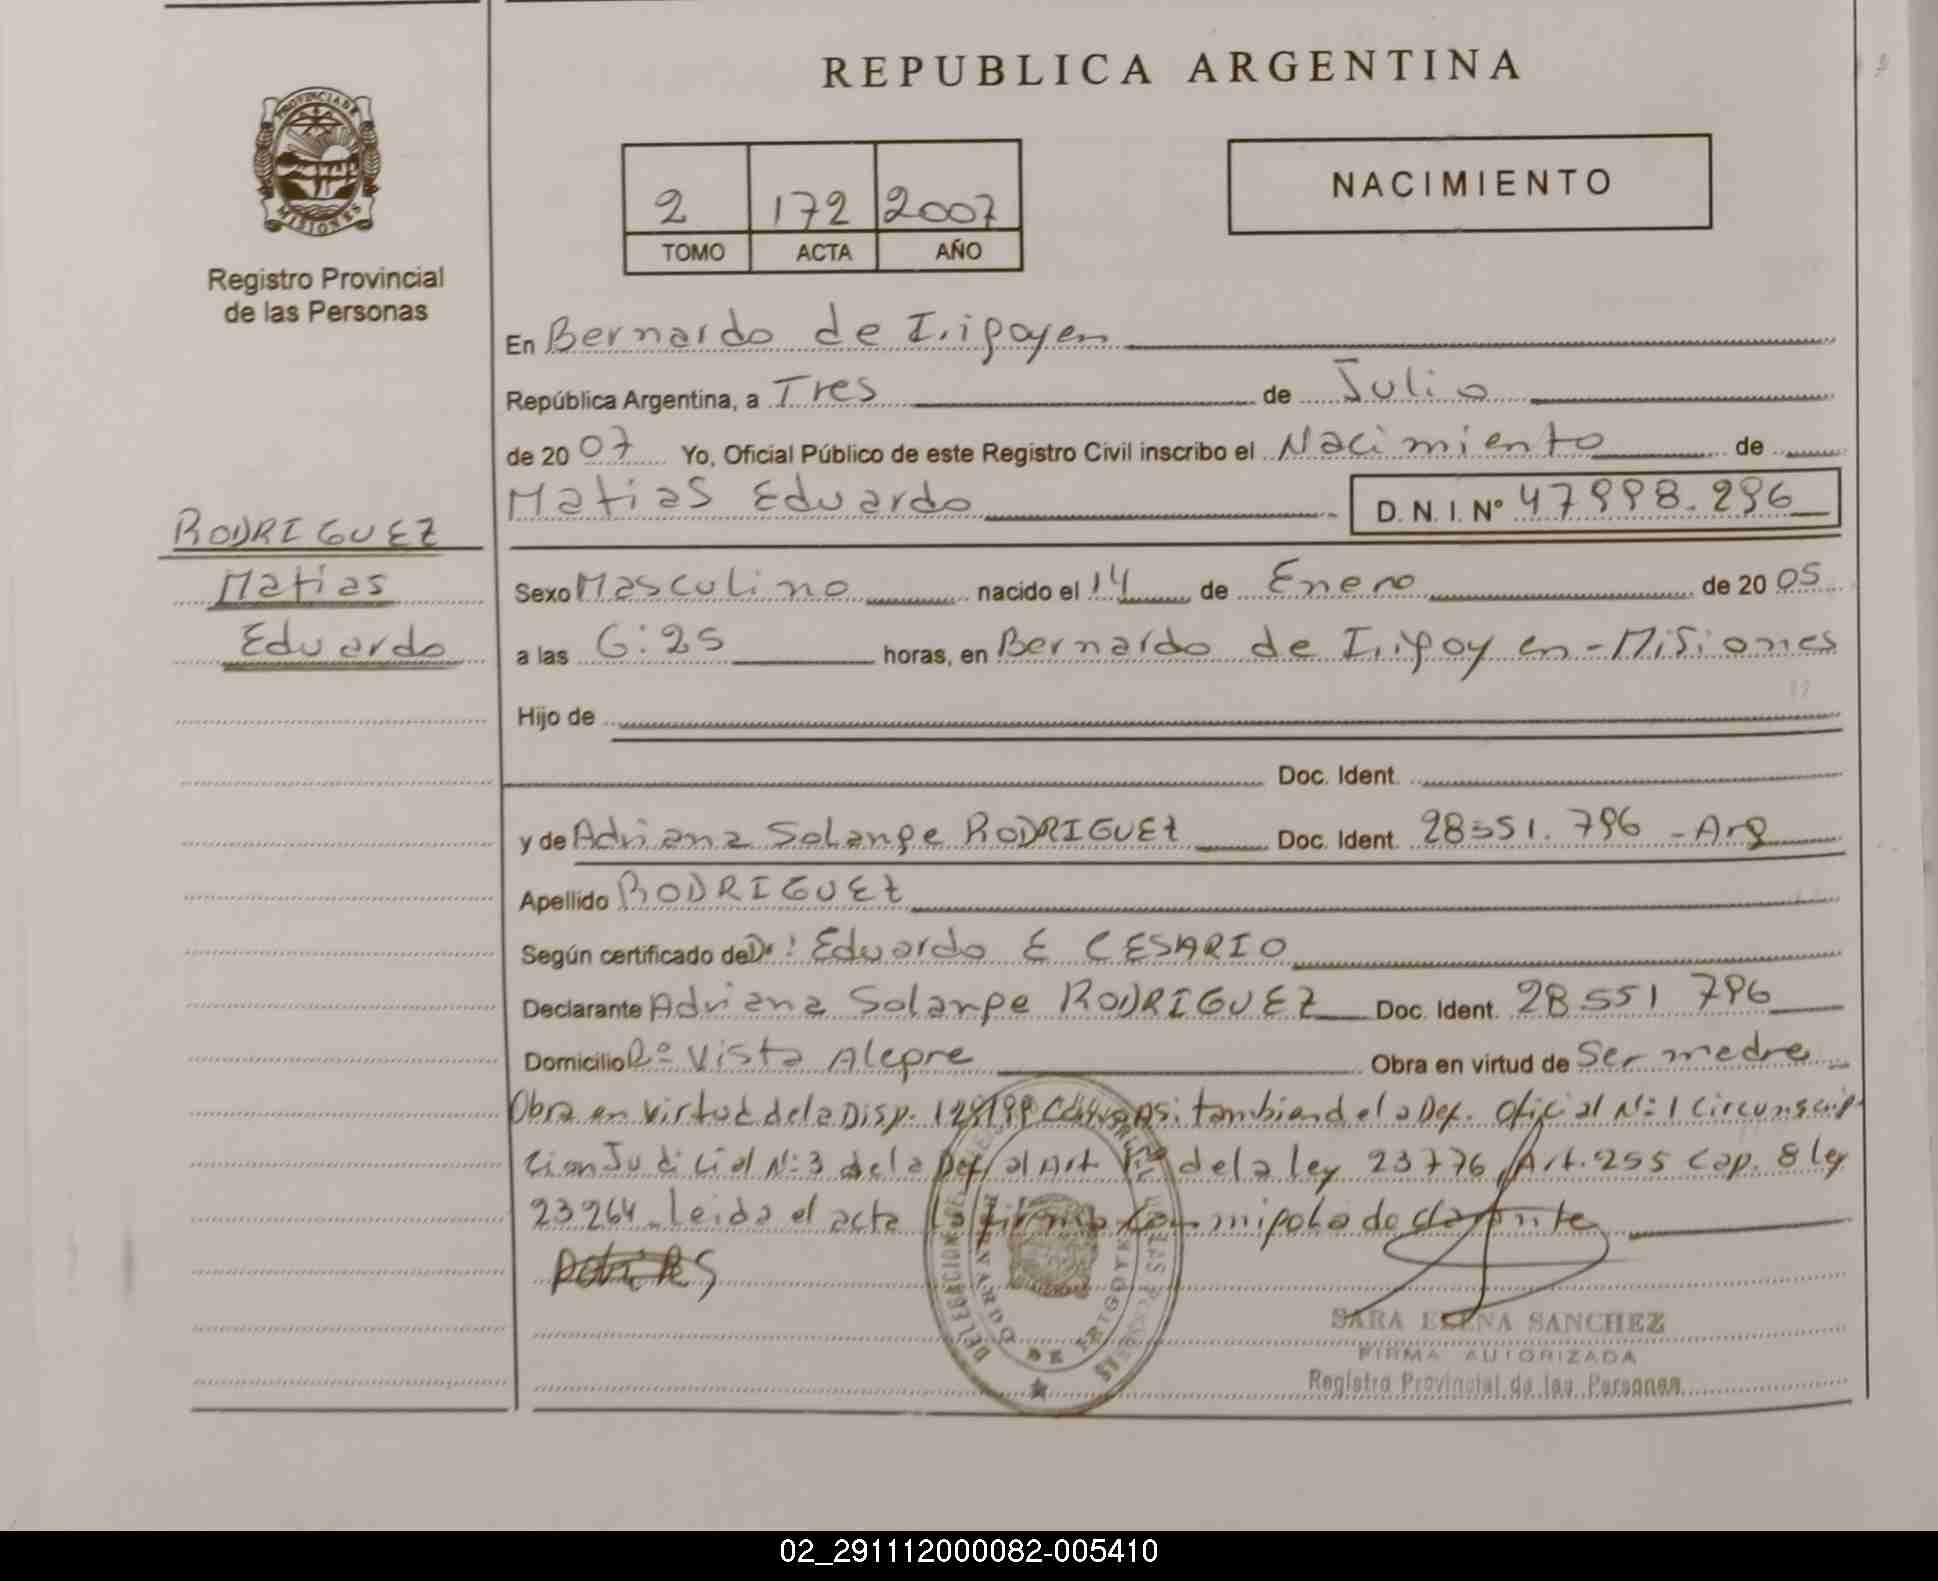 REPUBLICA ARGENTINA
PROVINCIA DE
MISIONES
Registro Provincial
de las Personas
2 172 2007
TOMO ACTA AÑO
NACIMIENTO
En Bernardo de Irigoyen
República Argentina, a Tres de Julio
de 20 07 Yo, Oficial Público de este Registro Civil inscribo el Nacimiento de
Matias Eduardo D. N. I. Nº 47998.296
RODRIGUEZ
Matias
Eduardo
Sexo Masculino nacido el 14 de Enero de 20 05
a las 6:25 horas, en Bernardo de Irigoyen - Misiones
Hijo de
Doc. Ident.
y de Adriana Solange RODRIGUEZ Doc. Ident. 28551.796 - Arg
Apellido RODRIGUEZ
Según certificado de Dr: Eduardo E CESARIO
Declarante Adriana Solange RODRIGUEZ Doc. Ident. 28.551 796
Domicilio Bº Vista Alegre Obra en virtud de Ser madre
Obra en virtud de la Disp. tambien de la Def. Oficial Nº 1 Circunscrip
cion Judicial Nº 3 de la Def. al Art de la ley 23776, Art. 255 Cap. 8 ley
23264. Leida el acta la firma Conmigo la declarante
DELEGACION DE
BERNARDO DE IRIGOYEN
SARA ELENA SANCHEZ
FIRMA AUTORIZADA
Registro Provincial de las Personas
02_291112000082-005410